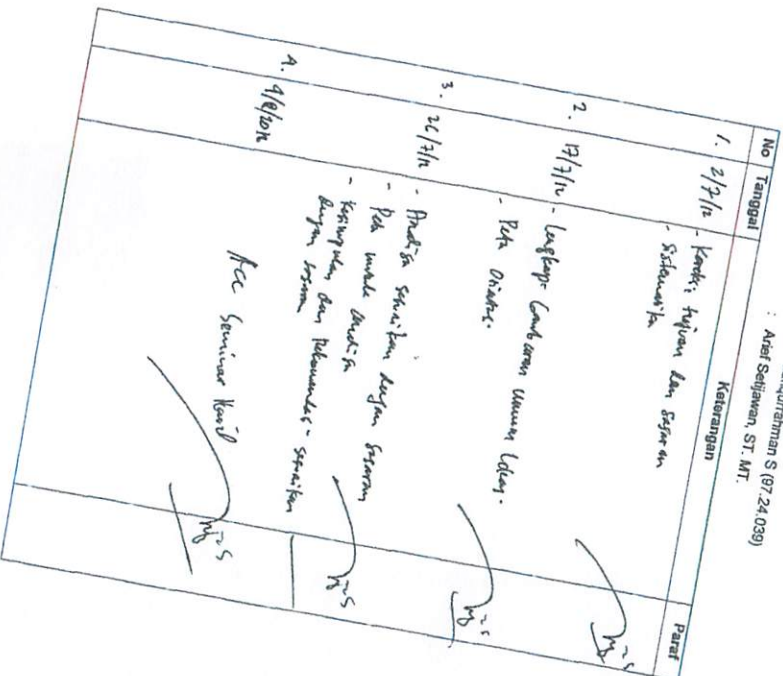 qurrahman S (97.24.039)
: Arief Setijawan, ST. MT.
No Tanggal Keterangan Paraf
1. 2/7/12 - Koreksi tujuan dan sasaran
- Sistematika
2. 17/7/12 - Lengkapi Gambaran umum lokasi.
- Peta
3. 26/7/12 - Analisa sesuaikan dengan sasaran
- Peta analisa
- Kesimpulan dan Rekomendasi - sesuaikan
dengan sasaran
4. 9/8/2012 Acc Seminar Hasil